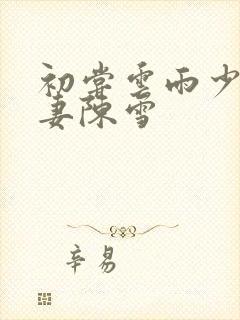 初尝雲雨少
妻陳雪
辛易